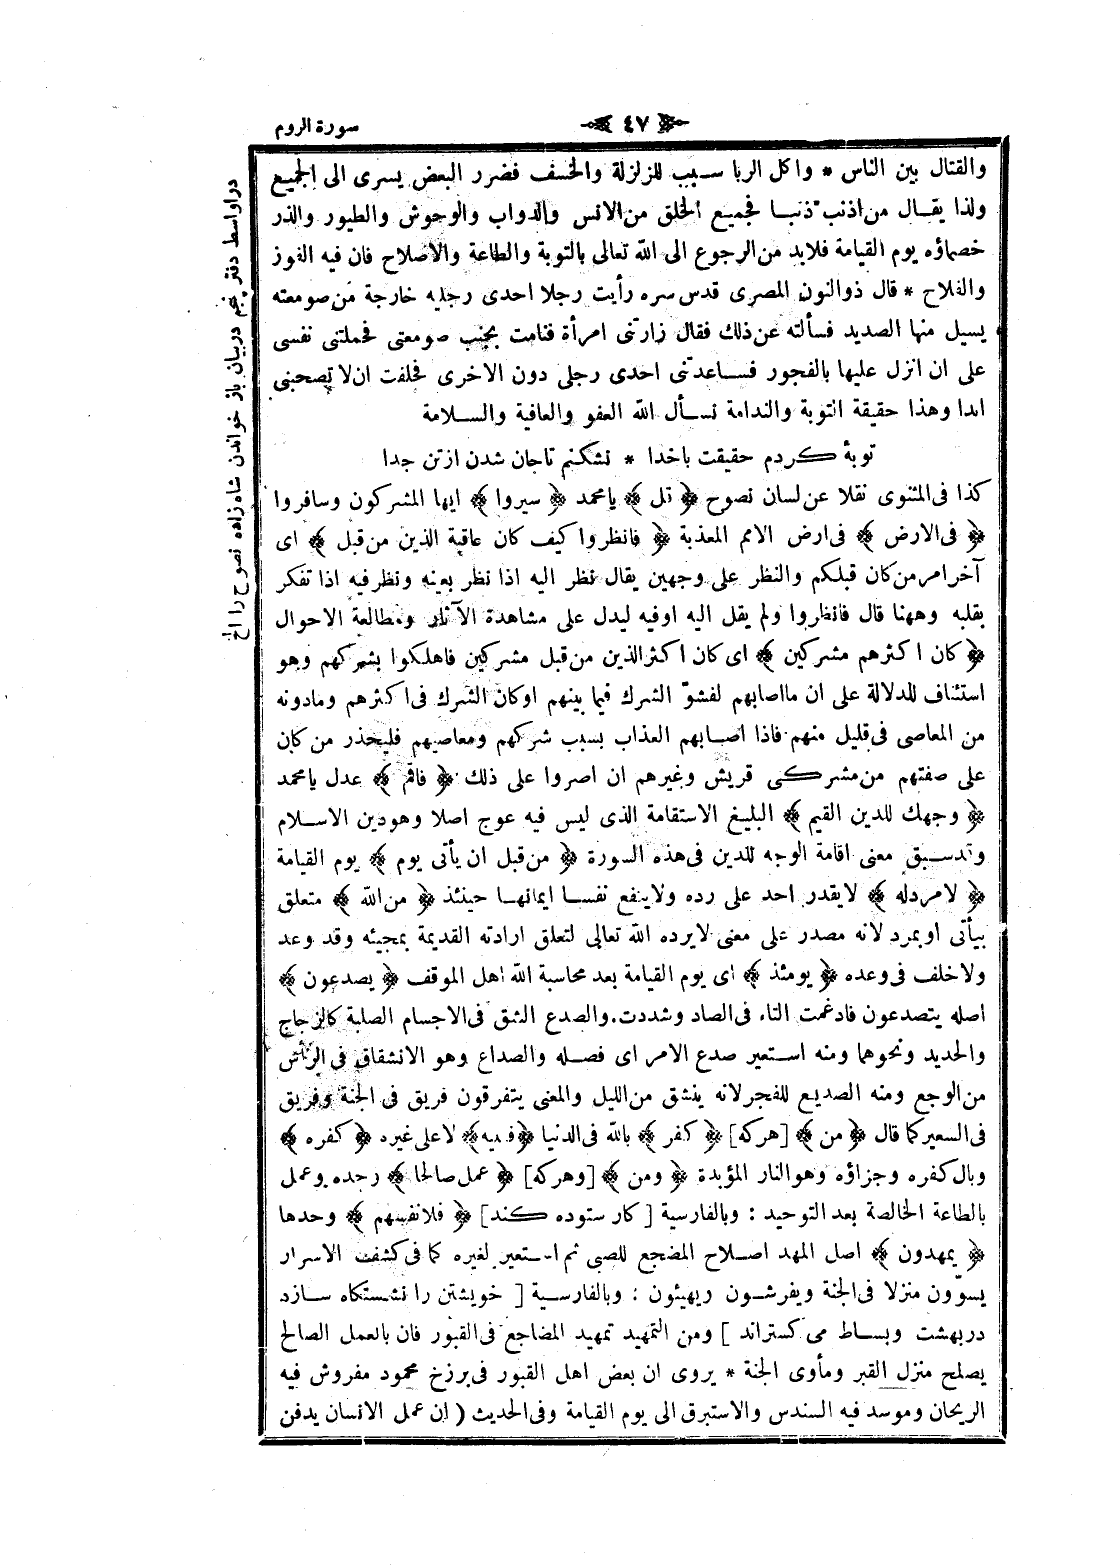 ﴿ ٤٧ ﴾ سورة الروم
والقتال بين الناس * واكل الربا سبب للزلزلة والخسف فضرر البعض يسرى الى الجميع
ولذا يقال من اذنب ذنبا فجميع الخلق من الانس والدواب والوحوش والطيور والذر
خصماؤه يوم القيامة فلابد من الرجوع الى الله تعالى بالتوبة والطاعة والاصلاح فان فيه الفوز
والفلاح * قال ذوالنون المصرى قدس سره رأيت رجلا احدى رجليه خارجة من صومعته
يسيل منها الصديد فسألته عن ذلك فقال زارتنى امرأة فنامت بجنب صومعتى فحملتنى نفسى
على ان انزل عليها بالفجور فساعدتنى احدى رجلى دون الاخرى فحلفت ان لا تصحبنى
ابدا وهذا حقيقة التوبة والندامة نسأل الله العفو والعافية والسلامة
توبۀ كردم حقيقت باخدا * نشكنم تاجان شدن ازتن جدا
كذا فى المثنوى نقلا عن لسان نصوح ﴿ قل ﴾ يامحمد ﴿ سيروا ﴾ ايها المشركون وسافروا
﴿ فى الارض ﴾ فى ارض الامم المعذبة ﴿ فانظروا كيف كان عاقبة الذين من قبل ﴾ اى
آخر امر من كان قبلكم والنظر على وجهين يقال نظر اليه اذا نظر بعينه ونظر فيه اذا تفكر
بقلبه وههنا قال فانظروا ولم يقل اليه اوفيه ليدل على مشاهدة الآثار ومطالعة الاحوال
﴿ كان اكثرهم مشركين ﴾ اى كان اكثر الذين من قبل مشركين فاهلكوا بشركهم وهو
استئناف للدلالة على ان مااصابهم لفشوّ الشرك فيما بينهم اوكان الشرك فى اكثرهم ومادونه
من المعاصى فى قليل منهم فاذا اصابهم العذاب بسبب شركهم ومعاصيهم فليحذر من كان
على صفتهم من مشركى قريش وغيرهم ان اصروا على ذلك ﴿ فاقم ﴾ عدل يامحمد
﴿ وجهك للدين القيم ﴾ البليغ الاستقامة الذى ليس فيه عوج اصلا وهودين الاسلام
وقدسبق معنى اقامة الوجه للدين فى هذه السورة ﴿ من قبل ان يأتى يوم ﴾ يوم القيامة
﴿ لامردله ﴾ لايقدر احد على رده ولاينفع نفسا ايمانها حينئذ ﴿ من الله ﴾ متعلق
بيأتى اوبمرد لانه مصدر على معنى لايرده الله تعالى لتعلق ارادته القديمة بمجيئه وقد وعد
ولاخلف فى وعده ﴿ يومئذ ﴾ اى يوم القيامة بعد محاسبة الله اهل الموقف ﴿ يصدعون ﴾
اصله يتصدعون فادغمت التاء فى الصاد وشددت. والصدع الشق فى الاجسام الصلبة كالزجاج
والحديد ونحوهما ومنه استعير صدع الامر اى فصله والصداع وهو الانشقاق فى الرأس
من الوجع ومنه الصديع للفجر لانه ينشق من الليل والمعنى يتفرقون فريق فى الجنة وفريق
فى السعير كما قال ﴿ من ﴾ [هركه] ﴿ كفر ﴾ بالله فى الدنيا ﴿ فعليه ﴾ لا على غيره ﴿ كفره ﴾
وبال كفره وجزاؤه وهو النار المؤبدة ﴿ ومن ﴾ [وهركه] ﴿ عمل صالحا ﴾ وحده وعمل
بالطاعة الخالصة بعد التوحيد : وبالفارسية [ كار ستوده كند ] ﴿ فلانفسهم ﴾ وحدها
﴿ يمهدون ﴾ اصل المهد اصلاح المضجع للصبى ثم استعير لغيره كما فى كشف الاسرار
يسوّون منزلا فى الجنة ويفرشون ويهيئون : وبالفارسية [ خويشتن را نشستكاه سازد
دربهشت وبساط مى كستراند ] ومن التمهيد تمهيد المضاجع فى القبور فان بالعمل الصالح
يصلح منزل القبر ومأوى الجنة * يروى ان بعض اهل القبور فى برزخ محمود مفروش فيه
الريحان وموسد فيه السندس والاستبرق الى يوم القيامة وفى الحديث ( ان عمل الانسان يدفن
دراواسط دفتر پنجم دربيان باز خواندن شاه زاده نصوح را الخ